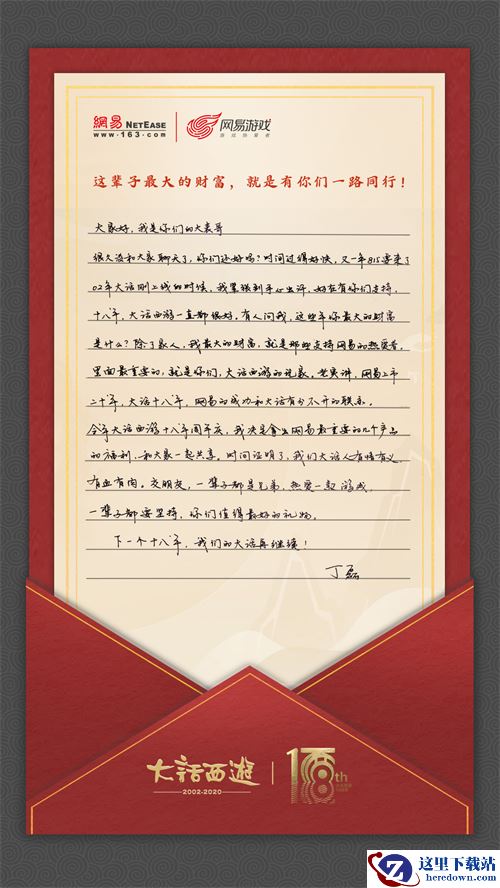 網易 NETEASE
www.163.com
网易游戏
游戏热爱者
这辈子最大的财富，就是有你们一路同行！
大家好，我是你们的大表哥
很久没和大家聊天了，你们还好吗？时间过得好快，又一年815要来了
02年大话刚上线的时候，我紧张到手心出汗，好在有你们支持，
十八年，大话西游一直都很好，有人问我，这些年你最大的财富
是什么？除了家人，我最大的财富，就是那些支持网易的热爱者，
里面最重要的，就是你们，大话西游的玩家。老实讲，网易上市
二十年，大话十八年，网易的成功和大话有分不开的联系。
今年大话西游十八周年庆，我决定拿出网易最重要的几个产品
的福利，和大家一起共享。时间证明了，我们大话人有情有义
有血有肉。交朋友，一辈子都是兄弟，热爱一款游戏，
一辈子都要坚持，你们值得最好的礼物。
下一个十八年，我们的大话再继续！
丁磊
大话西遊
2002-2020
18th
这里下载站
heredown.com